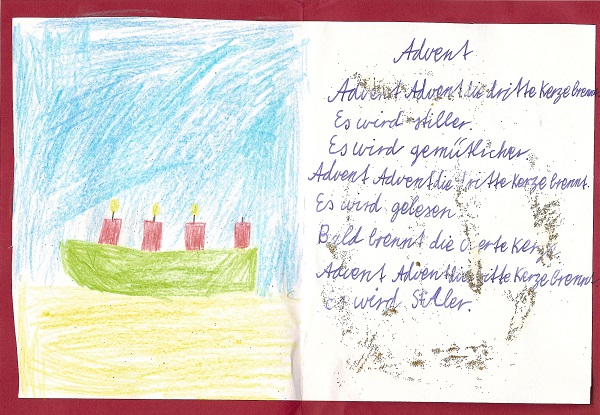 Advent
Advent Advent die dritte Kerze brennt.
Es wird stiller.
Es wird gemütlicher.
Advent Advent die dritte Kerze brennt.
Es wird gelesen
Bald brennt die vierte Kerze
Advent Advent die dritte Kerze brennt
Es wird Stiller.